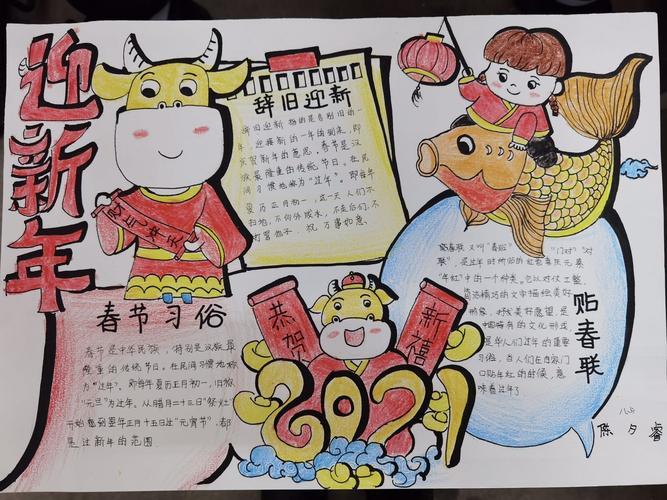 迎新年
财气冲天
辞旧迎新
辞旧迎新 指的是告别旧的一
年，迎接新的一年的到来，即
庆贺新年的意思。春节是汉
族最隆重的传统节日。在民
间习惯地称为"过年"。即每年
夏历正月初一，这一天人们不
扫地，不向外泼水，不走后门，不
打骂孩子，祝万事如意
春节习俗
春节是中华民族，特别是汉族最
隆重的传统节日。在民间习惯地称
为"过年"。即每年夏历正月初一，旧称
"元旦"为过年。从腊月二十三日"祭灶"
开始忽到翌年正月十五日过"元宵节"，都
是过新年的范围
恭贺
新禧
2021
贴春联
春联 又叫"春贴" "门对" "对
联"，是过年时所贴的红色喜庆元素
"年红"中的一个种类。它以对仗工整、
简洁精巧的文字描绘美好
形象，抒发美好愿望，是
中国特有的文化形式，
是华人们过年的重要
习俗。当人们在自家门
口贴年红的时候，意
味着过年了
陈夕睿